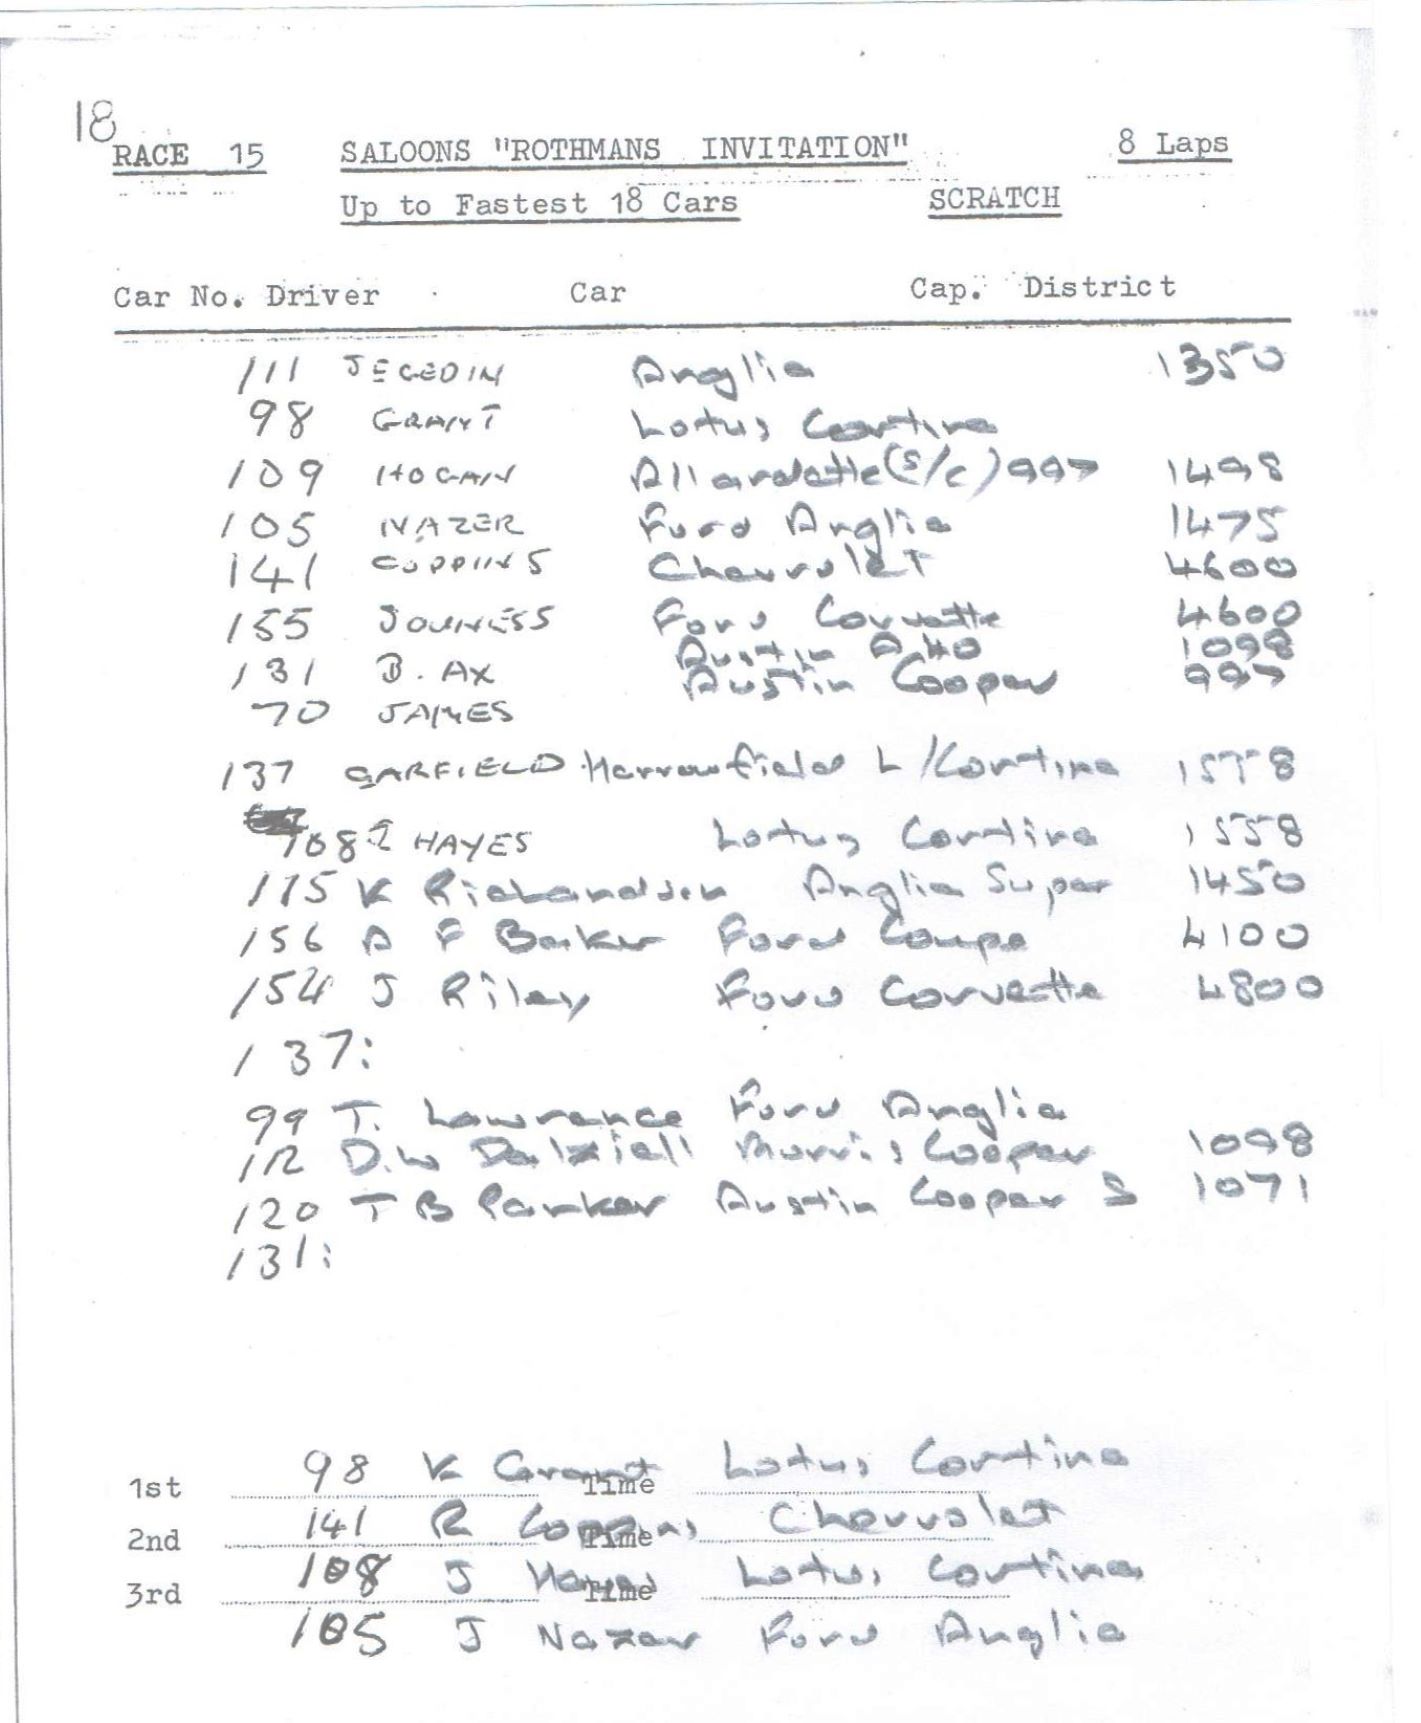 18
RACE 15 SALOONS "ROTHMANS INVITATION" 8 Laps
Up to Fastest 18 Cars SCRATCH
Car No. Driver Car Cap. District
111 JEGEDIN Anglia 1350
98 GRANT Lotus Cortina
109 HOGAN Allardette (S/C) 997 1498
105 NAZER Ford Anglia 1475
141 COPPINS Chevrolet 4600
155 Ford Corvette 4600
Austin A.40 1098
131 B. AX Austin Cooper 997
70 JAMES
137 GARFIELD Harrowfield L/Cortina 1558
108 HAYES Lotus Cortina 1558
115 K Richardson Anglia Super 1450
156 A F Barker Ford Coupe 4100
154 J Riley Ford Corvette 4800
137:
99 T. Lawrence Ford Anglia
112 D.W Dalziell Morris Cooper 1098
120 T B Parker Austin Cooper S 1071
131:
1st 98 K Grant Time Lotus Cortina
2nd 141 R Coppins Time Chevrolet
3rd 108 J Hayes Time Lotus Cortina
105 J Nazer Ford Anglia